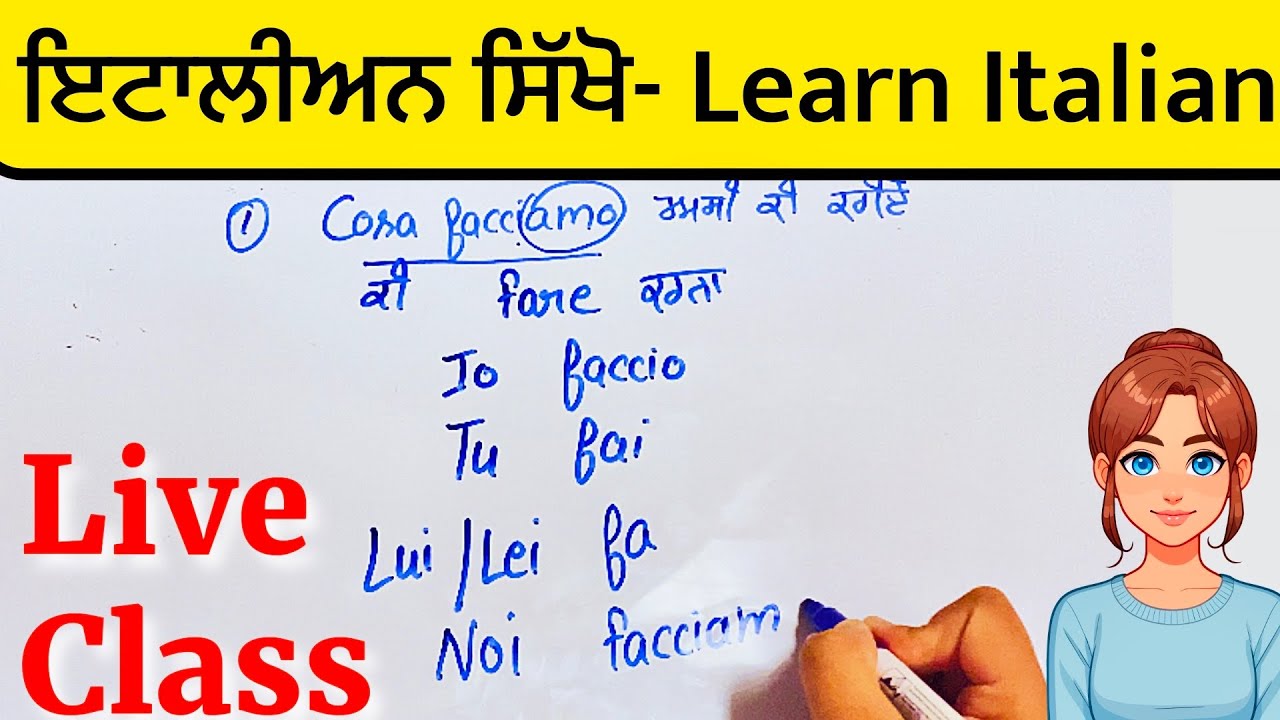 ਇਟਾਲੀਅਨ ਸਿੱਖੋ- Learn Italian
① Cosa facciamo ਅਸੀਂ ਕੀ ਕਰੀਏ
ਕੀ fare ਕਰਨਾ
Io faccio
Tu fai
Lui/Lei fa
Noi facciam
Live
Class